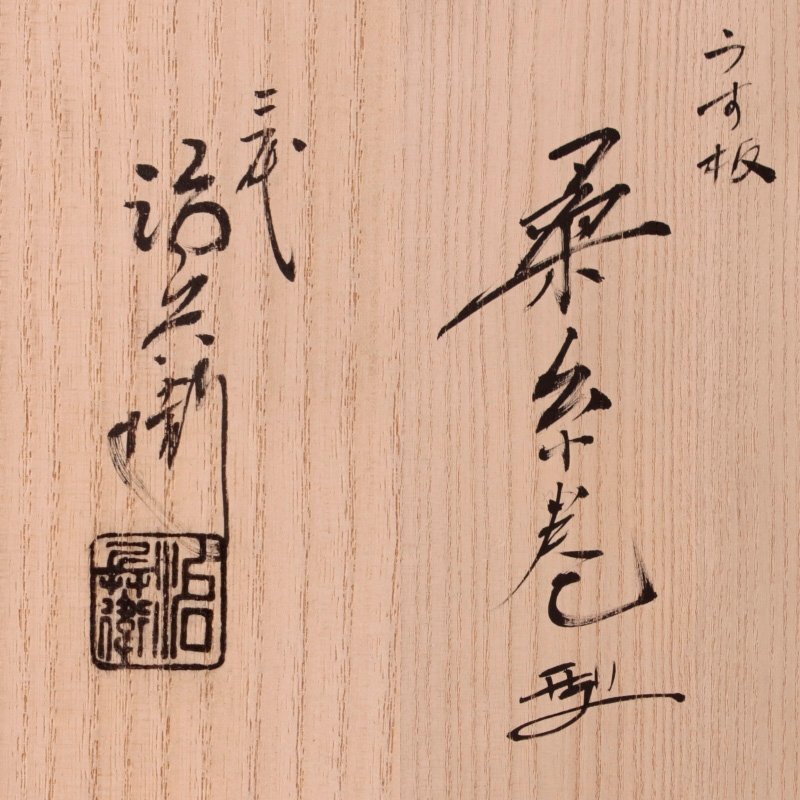 うす板
桑糸巻型
二代
治兵衛
治兵衛